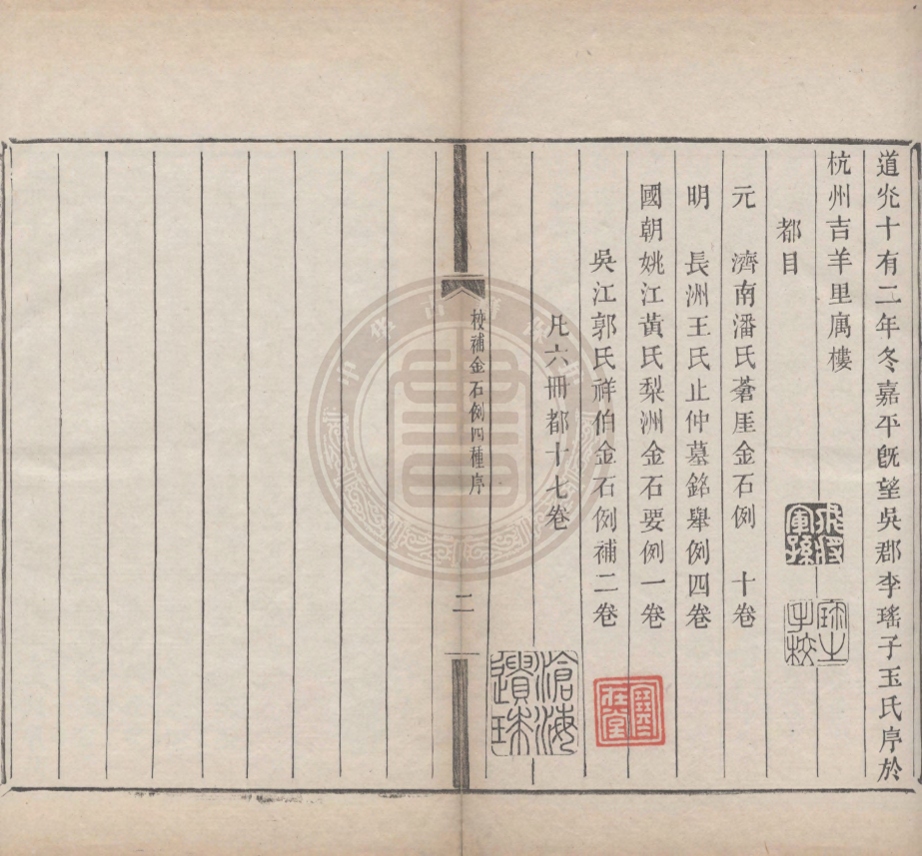 道光十有二年冬嘉平既望吳郡李瑤子玉氏序於
杭州吉羊里寓樓
都目
元　濟南潘氏蒼厓金石例　十卷
明　長洲王氏止仲墓銘舉例四卷
國朝姚江黃氏梨洲金石要例一卷
吳江郭氏祥伯金石例補二卷
凡六冊都十七卷
校補金石例四種序
二
滄海
遺珠